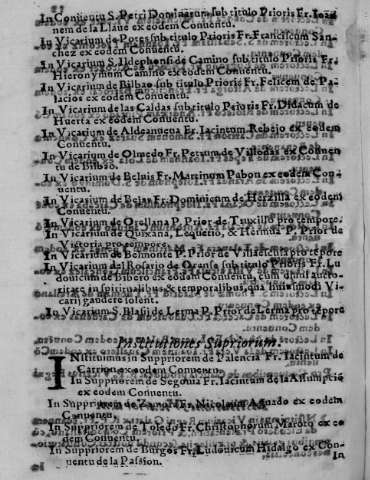 In Conuentu S. Petri Dominarum sub titulo Prioris Fr. Ioan
nem de la Llaue ex eodem Conuentu.
In Vicarium de Potes sub titulo Prioris Fr. Franciscum San-
chez ex eodem Conuentu.
In Vicarium S. Ildephonsi de Camino sub titulo Prioris Fr.
Hieronymum Camino ex eodem Conuentu.
In Vicarium de Bilbao sub titulo Prioris Fr. Felicem de Pa-
lacios ex eodem Conuentu.
In Vicarium de las Caldas sub titulo Prioris Fr. Didacum de
Huerta ex eodem Conuentu.
In Vicarium de Aldeanueua Fr. Iacintum Rebejo ex eodem
Conuentu.
In Vicarium de Olmedo Fr. Petrum de Villodas ex Conuen
tu de Bilbao.
In Vicarium de Beluis Fr. Martinum Pabon ex eodem Con-
uentu.
In Vicarium de Fr. Dominicum de ex eodem
Conuentu.
In Vicarium de Orellana P. Prior de Truxillo pro tempore.
In Vicarium de Quixana, Lequeitio, & Hermua P. Prior de
Victoria pro tempore.
In Vicarium de Belmonte P. Prior de Villaescusa pro tēpore
In Vicarium del Rosario de Ocaña sub titulo Prioris Fr. Lu
douicum de Ribero ex eodem Conuentu, cum omni aucto-
ritate in spiritualibus & temporalibus, qua huiusmodi Vi
carij gaudere solent.
In Vicarium S. Blasij de Lerma P. Prior de Lerma pro tēpore
Institutiones Suppriorum.
INstituimus in Suppriorem de Palencia Fr. Iacintum de
Carrion ex eodem Conuentu.
In Suppriorem de Segouia Fr. Iacintum de la Assumpciō
ex eodem Conuentu.
In Suppriorem de Fr. Nicolaum Aguado ex eodem
Conuentu.
In Suppriorem de Toledo Fr. Christophorum Maroto ex eo
dem Conuentu.
In Suppriorem de Burgos Fr. Ludouicum Hidalgo ex Con-
uentu de la Passion.
In